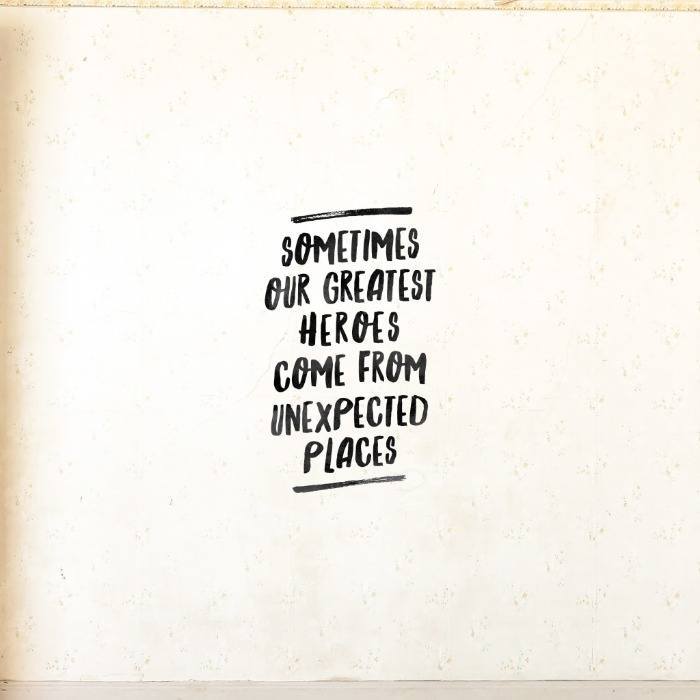 SOMETIMES
OUR GREATEST
HEROES
COME FROM
UNEXPECTED
PLACES